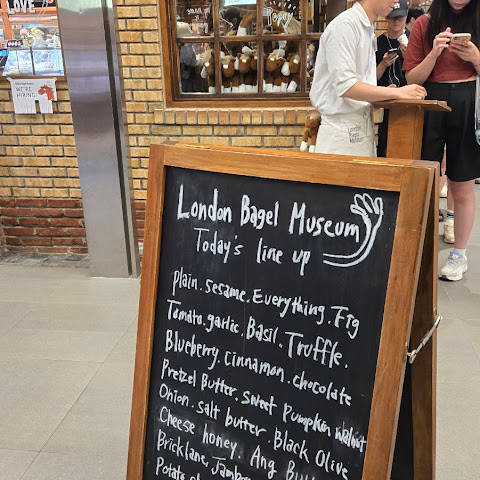 LOVE
WE'RE
HIRING!
London Bagel Museum
Today's line up
plain. sesame. Everything. Fig
Tomato. garlic. Basil. Truffle.
Blueberry. cinnamon. chocolate
Pretzel Butter. sweet pumpkin walnut
Onion. salt butter. Black Olive
Cheese honey. Ang
Bricklane,